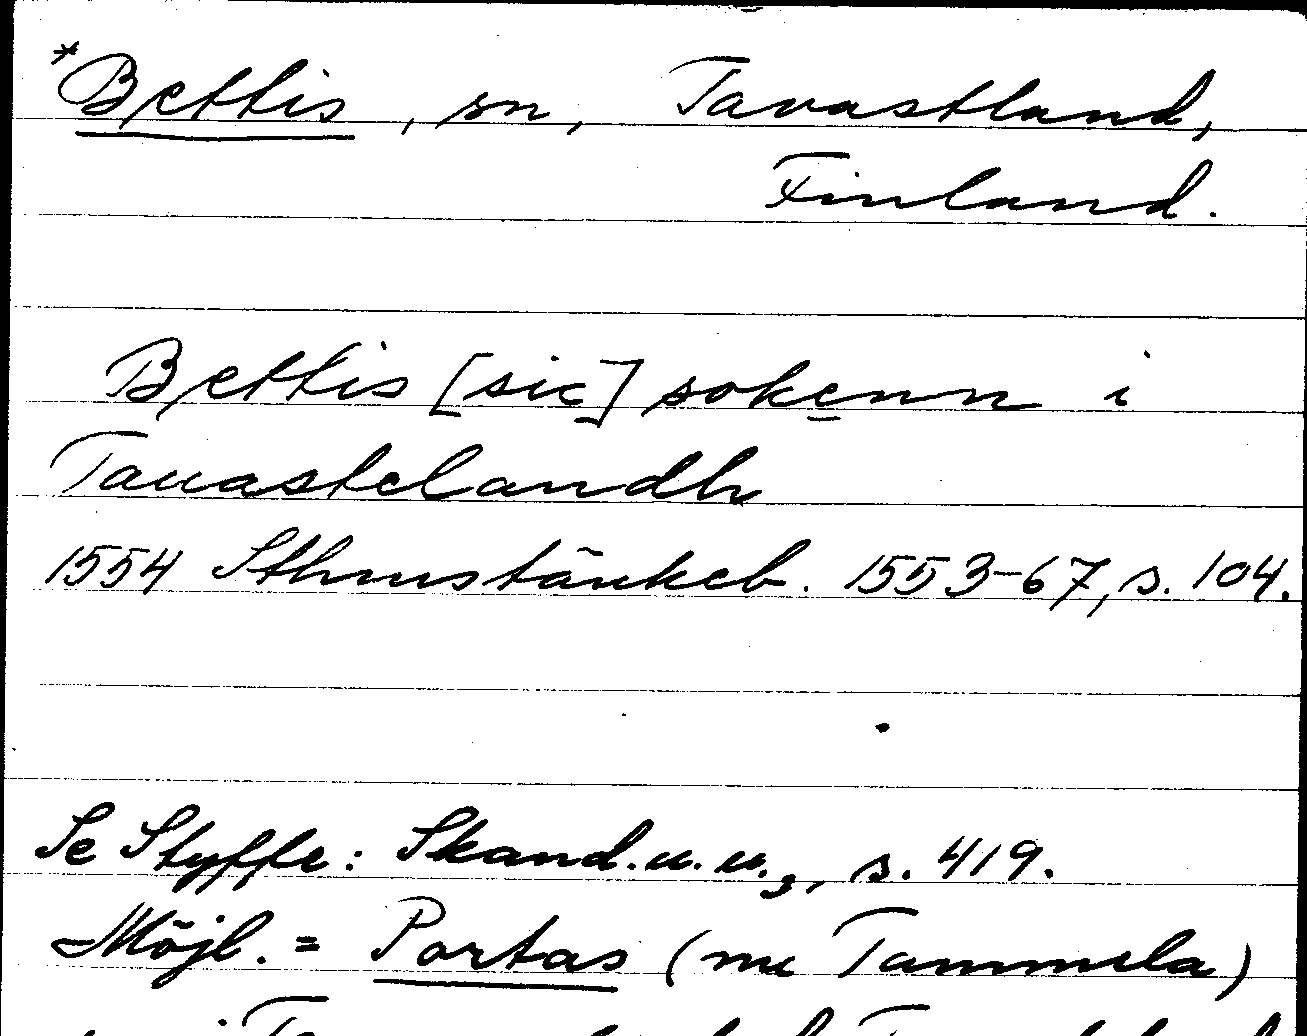 *Bettis, sn, Tavastland,
Finland.
Bettis [sic] sokenn i
Tauastelandh
1554 Sthmstänkeb. 1553-67, s. 104.
Se Styffe: Skand. u. u.3, s. 419.
Möjl. = Portas (nu Tammela)